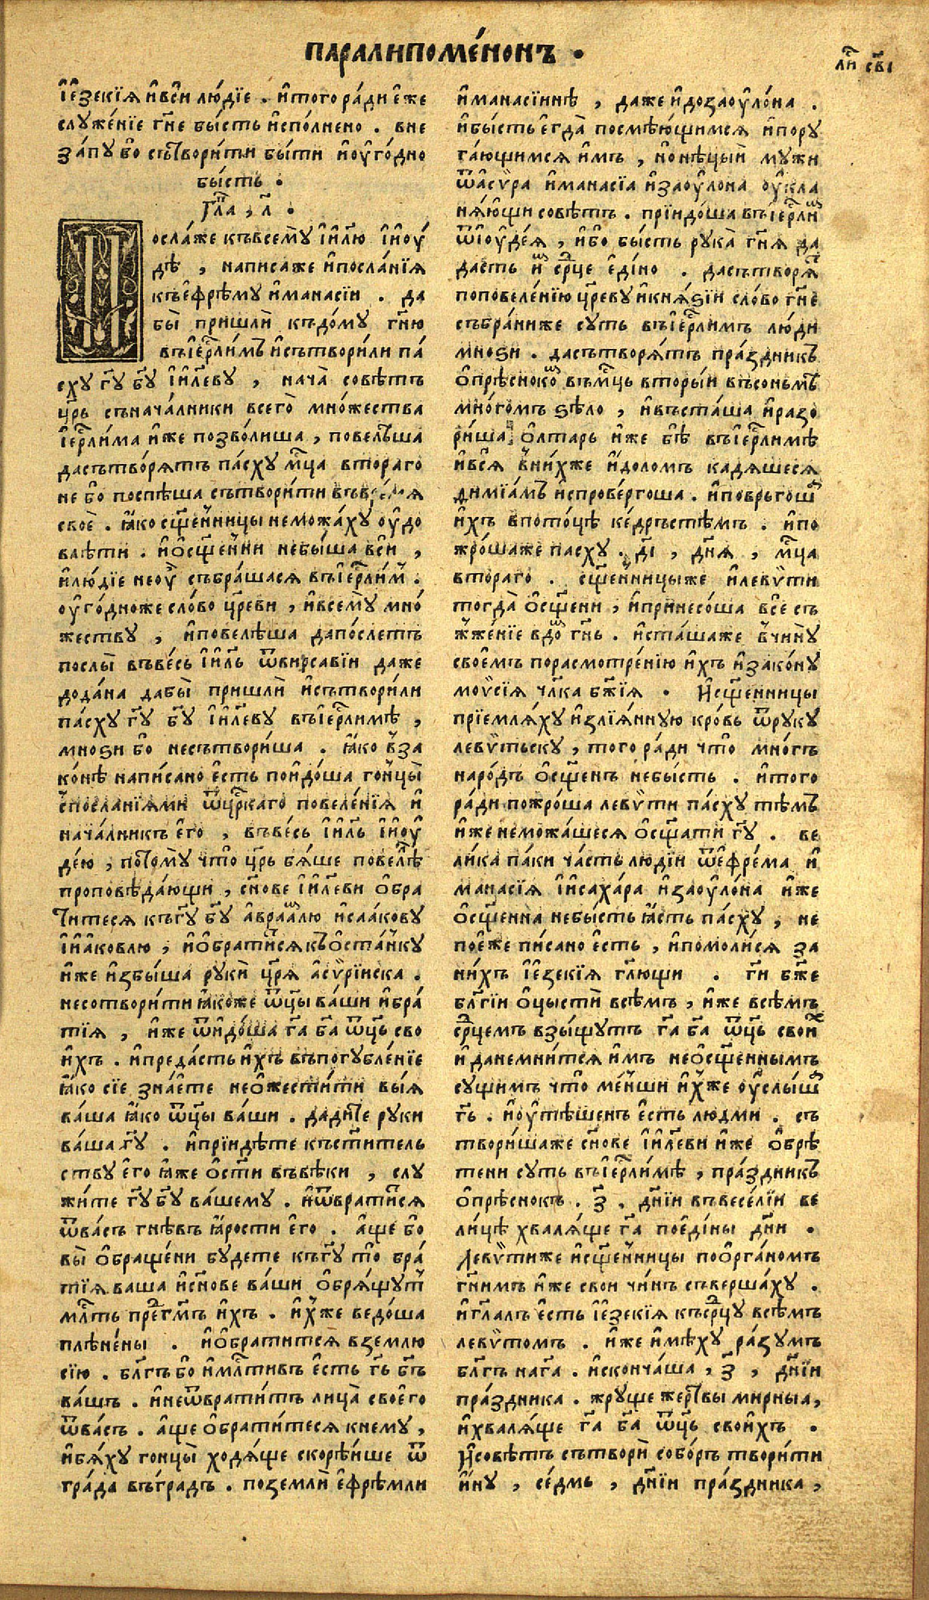 паралипоме́нонъ .
ли҃ ѕ҃ві
і҆е҆зекі́ѧ и҆всѝ лю́дїе . и҆того ра́ди е҆́же
слꙋже́нїе гн҃е бы́сть и҆спо́лнено . вне
за́пꙋ бо̀ сътвори́ти бы́ти и҆ꙋ҆го́дно
бы́сть .
гл҃а , л҃ .
посла́же къвсемꙋ̀ і҆и҃лю і҆і҆ꙋ́
дѣ , написа́же и҆посла́нїѧ
къе҆фре́мꙋ и҆манасі́и . да
бы̀ пришлѝ къдо́мꙋ гн҃ю
въі҆ер҃лимъ и҆сътвори́ли па́
схꙋ гꙋ҃ бꙋ҃ і҆и҃левꙋ , нача̀ совѣ́тъ
цр҃ь сънача́лники всего̀ мно́жества
і҆ер҃ли́ма и҆́же позво́лиша , повелѣ́ша
дасътво́рѧтъ па́схꙋ мц҃а втораго
не бо̀ поспѣ́ша сътвори́ти въвре́мѧ
своѐ . ꙗ҆́ко сщ҃е́нницы неможа́хꙋ ꙋ҆до
влѣ́ти . и҆ѻ҆сщ҃е́нни небы́ша всѝ ,
и҆лю́дїе неꙋ̀ събра́шасѧ въі҆ер҃ли́м .
ꙋ҆го́дноже сло́во цр҃еви , и҆всемꙋ̀ мно́
жествꙋ , и҆повелѣ́ша дапо́слетъ
послы̀ въве́сь і҆и҃ль ѿвирсаві́и да́же
дода́на дабы̀ пришлѝ и҆сътвори́ли
па́схꙋ гꙋ҃ бꙋ҃ і҆и҃левꙋ въі҆ер҃лимѣ ,
мно́ѕи бо̀ несътвори́ша . ꙗ҆́ко вза
ко́нѣ напи́сано е҆́сть пои҆до́ша гонцы̀
спосла́нїѧми ѿцр҃каго повеле́нїѧ и҆
нача́лникъ е҆го̀ , въве́сь і҆и҃ль і҆і҆ꙋ
де́ю , потомꙋ̀ что̀ цр҃ь бѧ́ше повелѣ
проповѣ́дающи , сн҃ове і҆и҃леви ѻ҆бра
ти́тесѧ къгꙋ҃ бꙋ҃ а҆враа́млю и҆саа́ковꙋ
і҆і҆а́ковлю , и҆ѻ҆брати́сѧ къѻ҆ста́нкꙋ
и҆́же и҆збы́ша рꙋкѝ цр҃ѧ̀ а҆сѵри́йска .
несотвори́ти ꙗ҆́коже ѿц҃ы ва́ши и҆бра́
тїѧ , и҆́же ѿи҆до́ша га҃ ба҃ ѿц҃ъ сво
и́хъ . и҆предасть и҆́хъ въпогꙋбле́нїе
ꙗ҆́ко сїѐ зна́ете неѻ҆жести́ти вы́ѧ
ва́ша ꙗ҆́ко ѿц҃ы ва́ши . дади́те рꙋки
ва́ша гꙋ҃ . и҆прїидѣ́те къст҃и́тель
ствꙋ е҆го̀ ꙗ҆́же ѻ҆ст҃и въвѣ́ки , слꙋ
жи́те гꙋ҃ бꙋ҃ ва́шемꙋ . и҆ѿврати́тсѧ
ѿва́съ гнѣ́въ ꙗ҆́рости е҆го̀ . а҆́ще бо̀
вы̀ ѻ҆браще́ни бꙋ́дете къгꙋ҃ то̀ бра́
тїѧ ва́ша и҆сн҃ове ва́ши ѻ҆брѧ́щꙋт
мл҃ть пре́гд҃мъ и҆́хъ . и҆́хже ведо́ша
плѣне́ны . и҆ѻ҆брати́тсѧ вземлю
сїю . бл҃гъ бо̀ и҆мл҃тивъ е҆́сть г҃ь б҃ъ
ва́шъ . и҆неѿврати́тъ лица̀ своего
ѿва́съ . а҆́ще ѻ҆брати́тесѧ кнемꙋ ,
и҆бѧ́хꙋ гонцы̀ ходѧ́ще скорѣ́ише ѿ
гра́да въгра́дъ . поземлѝ е҆фре́мли
и҆манасі́инѣ , да́же и҆дозаꙋло́на .
и҆бы́сть е҆гда̀ посмѣю́щимсѧ и҆порꙋ
га́ющимсѧ и҆́мъ , но нѣ́цыи мꙋ́жи
ѿа҆си́ра и҆манасі́а и҆заꙋло́на ꙋ҆кла
нѧ́ющи совѣ́тъ . прїидо́ша въі҆ер҃лим
ѿі҆ꙋде́ѧ , и҆́бо бы́сть рꙋка̀ гн҃ѧ да
да́сть и҆м ср҃це е҆ди́но . дасътворѧ́т
поповеле́нїю цр҃евꙋ и҆кнѧ́ѕїи сло́во гн҃е
съ́браниже сꙋть въі҆ер҃лимъ лю́ди
мно́ѕи . дасътворѧ́тъ пра́здникъ
ѻ҆прѣсноко́м въмц҃ь вторы́и въсоньм
мно́гомъ ѕѣло , и҆въста́ша и҆разо
ри́ша ѻ҆лта́рь и҆́же бѣ̀ въі҆ер҃лимѣ
и҆всѧ̀ вни́хже и҆́доломъ кадѧ́шесѧ
димїа́мъ и҆спрове́ргоша . и҆повръгош
и҆́хъ впото́цѣ ке́дръстѣмъ . и҆по
жро́шаже па́схꙋ . д҃і , дн҃ѧ , мц҃а
втораго . сщ҃е́нницыже и҆леви́ти
тогда̀ ѻ҆сщ҃ени , и҆принесо́ша все съ
жже́нїе вдо́м гн҃ь . и҆ста́шаже вчи́нꙋ
свое́мъ поразмотре́нїю и҆́хъ и҆зако́нꙋ
моѵсі́ѧ чл҃ка бж҃їѧ . и҆сщ҃е́нницы
прїемлѧ́хꙋ и҆злїѧ́ннꙋю кро́вь ѿрꙋкꙋ
леви́тьскꙋ , того ра́ди что̀ мно́гъ
наро́дъ ѻ҆сщ҃енъ небы́сть . и҆того
ра́ди пожро́ша леви́ти па́схꙋ тѣ́мъ
и҆́же неможа́шесѧ ѻ҆сщ҃ати гꙋ҃ . ве
ли́ка па́ки ча́сть люді́и ѿе҆фре́ма и҆
манасі́ѧ і҆и҆саха́ра и҆заꙋло́на и҆́же
ѻ҆сщ҃енна небы́сть ꙗ҆́сть па́схꙋ , не
пое҆́же пи́сано е҆́сть , и҆помоли́сѧ за
ни́хъ і҆е҆зекі́ѧ гл҃ющи . г҃и бж҃е
бл҃гїи ѻ҆цы́сти всѣ́мъ , и҆́же всѣ́мъ
ср҃цемъ взы́щꙋтъ га҃ ба҃ ѿц҃ъ свои́х
и҆данемни́тсѧ и҆́мъ неѻ҆сщ҃е́ннымъ
сꙋщимъ что̀ ме́нши и҆́хже ꙋ҆слы́ш
г҃ь . и҆ꙋ҆тѣ́шенъ е҆́сть людми . съ
твори́шаже сн҃ове і҆и҃леви и҆́же ѻ҆брѣ́
тени сꙋть въі҆ер҃лимѣ , пра́здникъ
ѻ҆прѣ́снокъ . з҃ . дн҃їи въвесе́лїи ве
ли́цѣ хвалѧ́ще га҃ пое҆ди́ны дн҃и .
леви́тиже и҆сщ҃е́нницы поѻ҆рга́номъ
гн҃имъ и҆́же свои чи́нъ съверша́хꙋ .
и҆гл҃алъ е҆́сть і҆е҆зекі́ѧ къср҃цꙋ всѣ́мъ
леви́томъ . и҆́же и҆мѣ́хꙋ ра́зꙋмъ
бл҃гъ нага҃ . и҆сконча́ша , з҃ , дн҃їи
пра́здника . жрꙋ́ще же́ртвы ми́рныа ,
и҆хвалѧ́ще га҃ ба҃ ѿц҃ъ свои́хъ .
и҆совѣ́тъ сътворѝ собо́ръ твори́ти
и҆́нꙋ , се́дмь , дн҃їи пра́здника ,